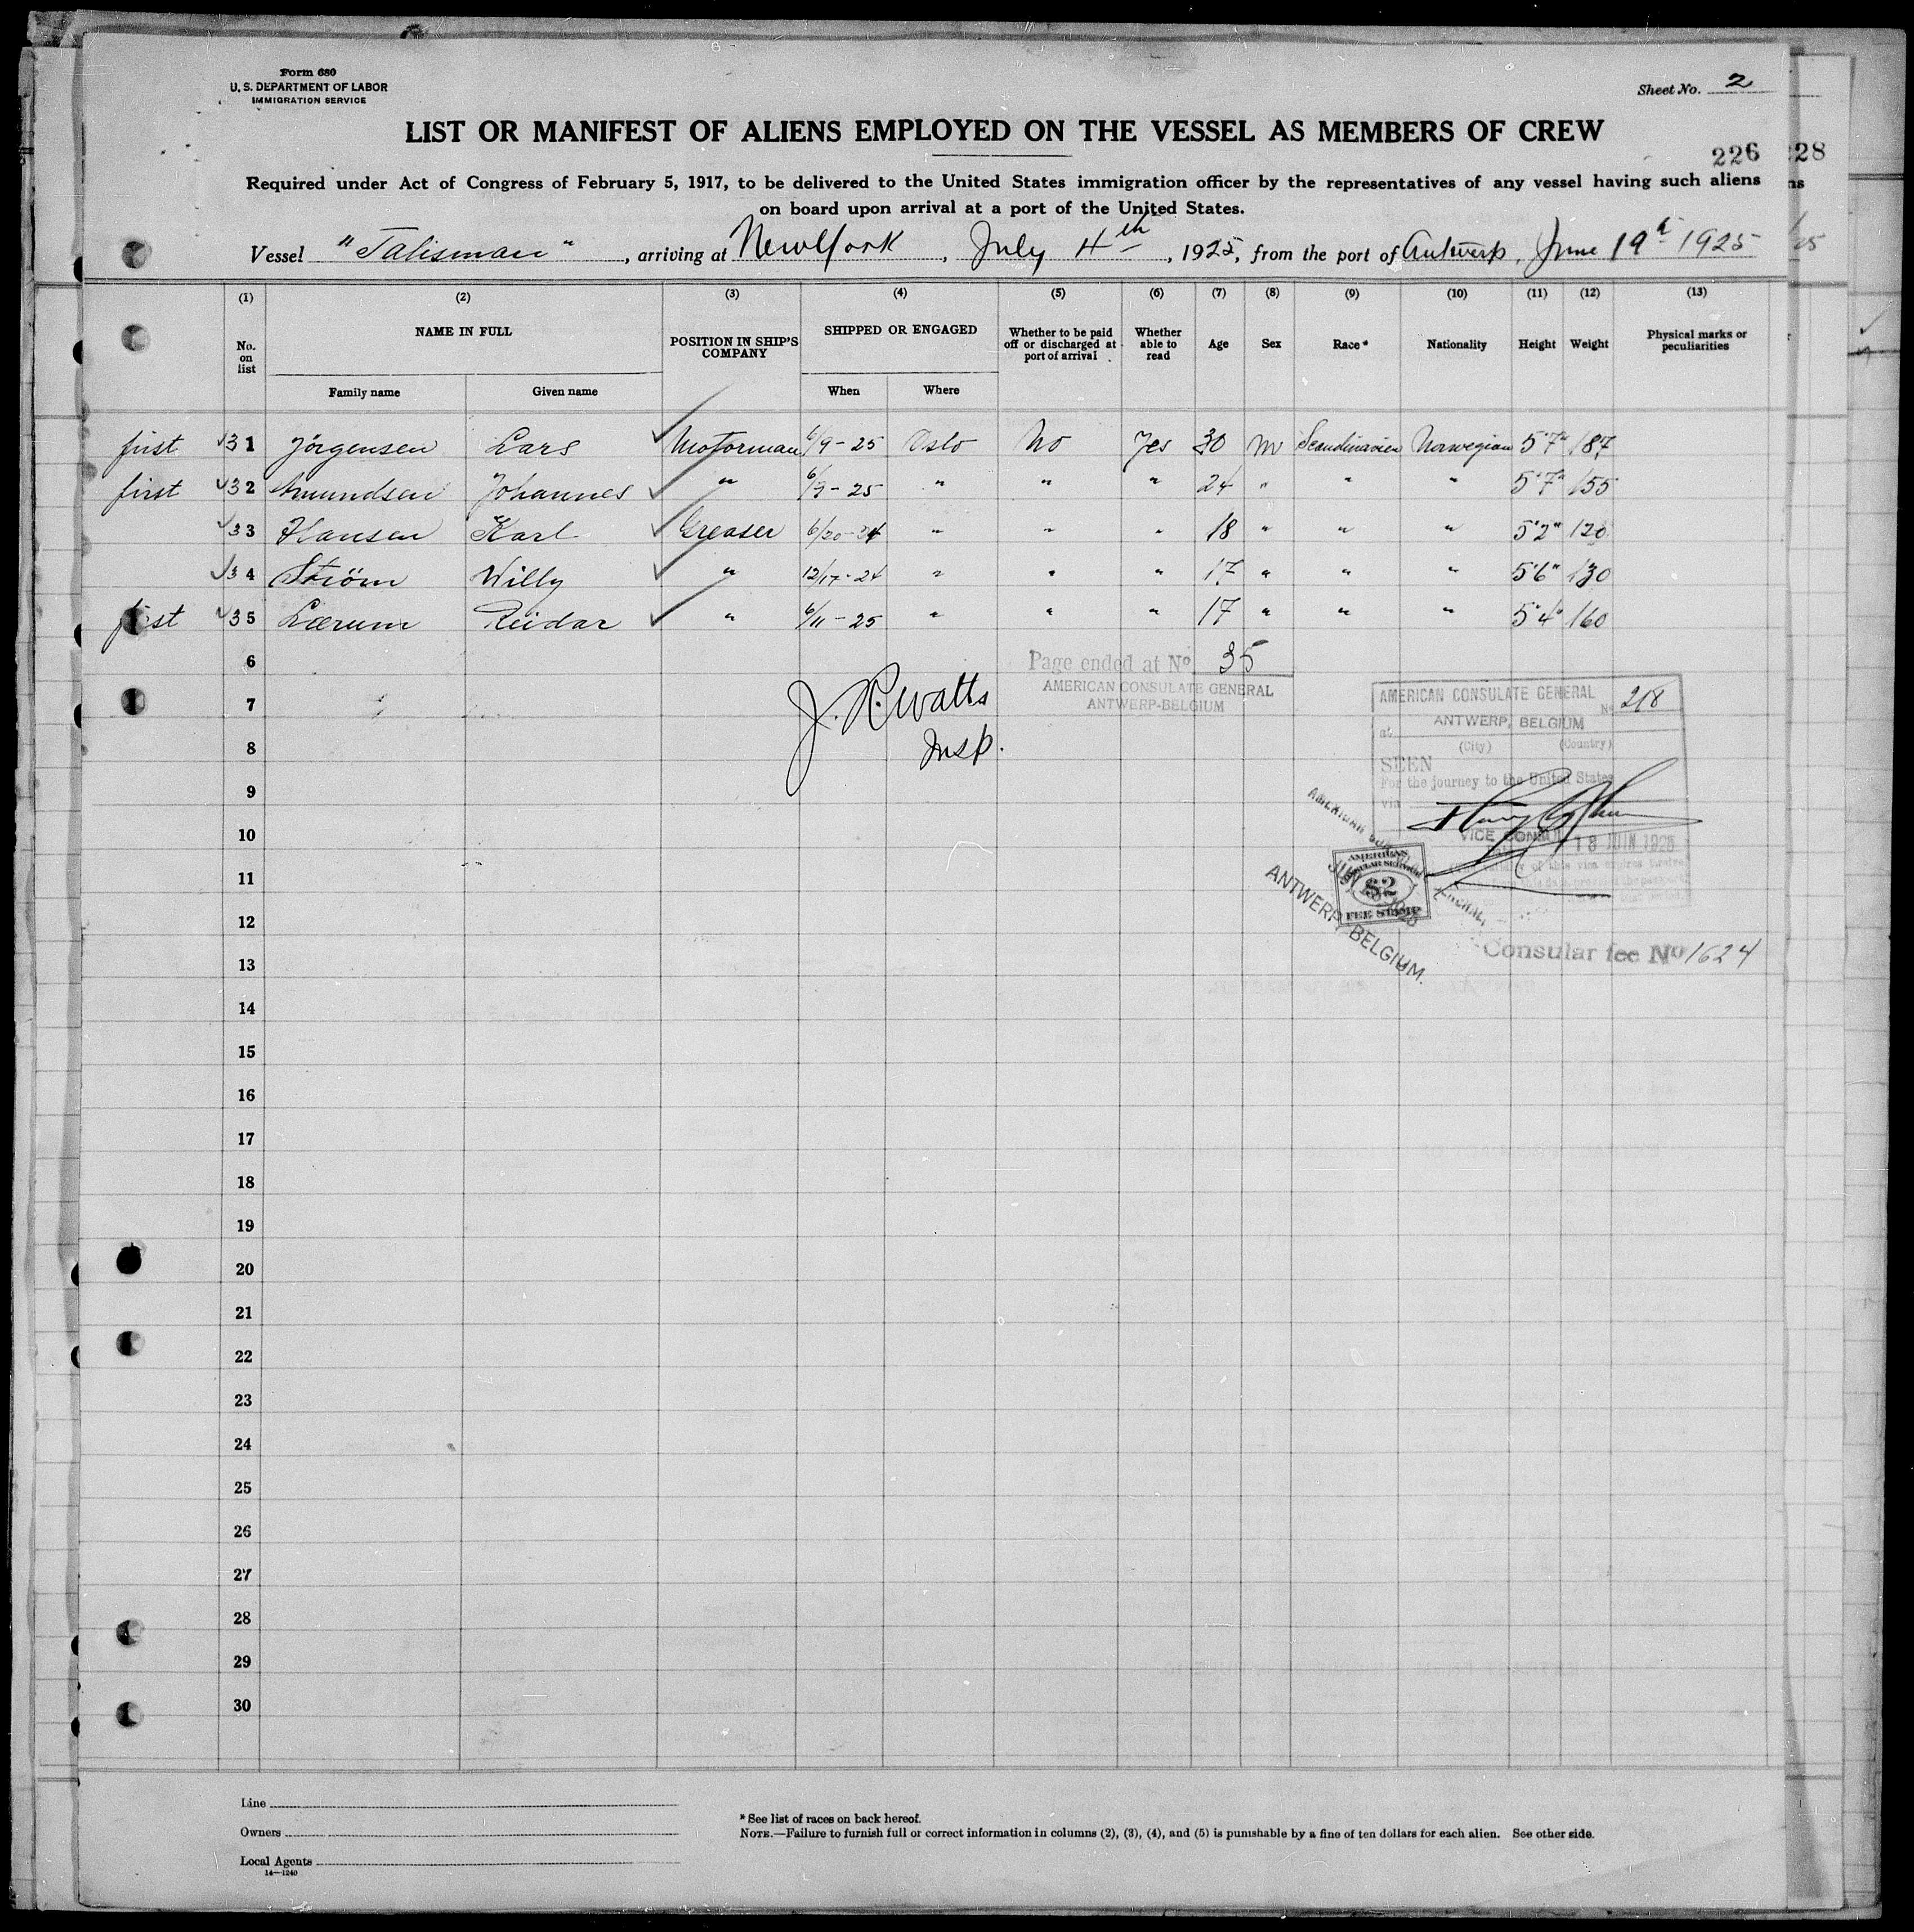 Form 680
U. S. DEPARTMENT OF LABOR
IMMIGRATION SERVICE
Sheet No. 2
LIST OR MANIFEST OF ALIENS EMPLOYED ON THE VESSEL AS MEMBERS OF CREW
226
228
Required under Act of Congress of February 5, 1917, to be delivered to the United States immigration officer by the representatives of any vessel having such aliens
ns
on board upon arrival at a port of the United States.
Vessel "Talisman", arriving at New York, July 4th, 1925, from the port of Antwerp, June 19th 1925
(1) (2) (3) (4) (5) (6) (7) (8) (9) (10) (11) (12) (13)
No. on list
NAME IN FULL
Family name Given name
POSITION IN SHIP'S COMPANY
SHIPPED OR ENGAGED
When Where
Whether to be paid off or discharged at port of arrival
Whether able to read
Age Sex Race* Nationality Height Weight
Physical marks or peculiarities
first 31 Jörgensen Lars Motorman 6/9-25 Oslo No Yes 30 m Scandinavien Norwegian 5'7" 187
first 32 Amundsen Johannes " 6/9-25 " " " 24 " " " 5'7" 155
33 Hansen Karl Greaser 6/20-24 " " " 18 " " " 5'2" 120
34 Ström Willy " 12/17-24 " " " 17 " " " 5'6" 130
first 35 Lærum Reidar " 6/11-25 " " " 17 " " " 5'4" 160
6
Page ended at No 35
AMERICAN CONSULATE GENERAL
ANTWERP-BELGIUM
7
J. R. Watts
Insp.
AMERICAN CONSULATE GENERAL
No 218
at ANTWERP, BELGIUM
(City) (Country)
SEEN
For the journey to the United States
via
VICE CONSUL
18 JUIN 1925
8
9
10
11
AMERICAN
CONSULAR SERVICE
$2
FEE STAMP
ANTWERP, BELGIUM.
12
Consular fee No 1624
13
14
15
16
17
18
19
20
21
22
23
24
25
26
27
28
29
30
Line
Owners
Local Agents
14—1240
* See list of races on back hereof.
NOTE.—Failure to furnish full or correct information in columns (2), (3), (4), and (5) is punishable by a fine of ten dollars for each alien. See other side.